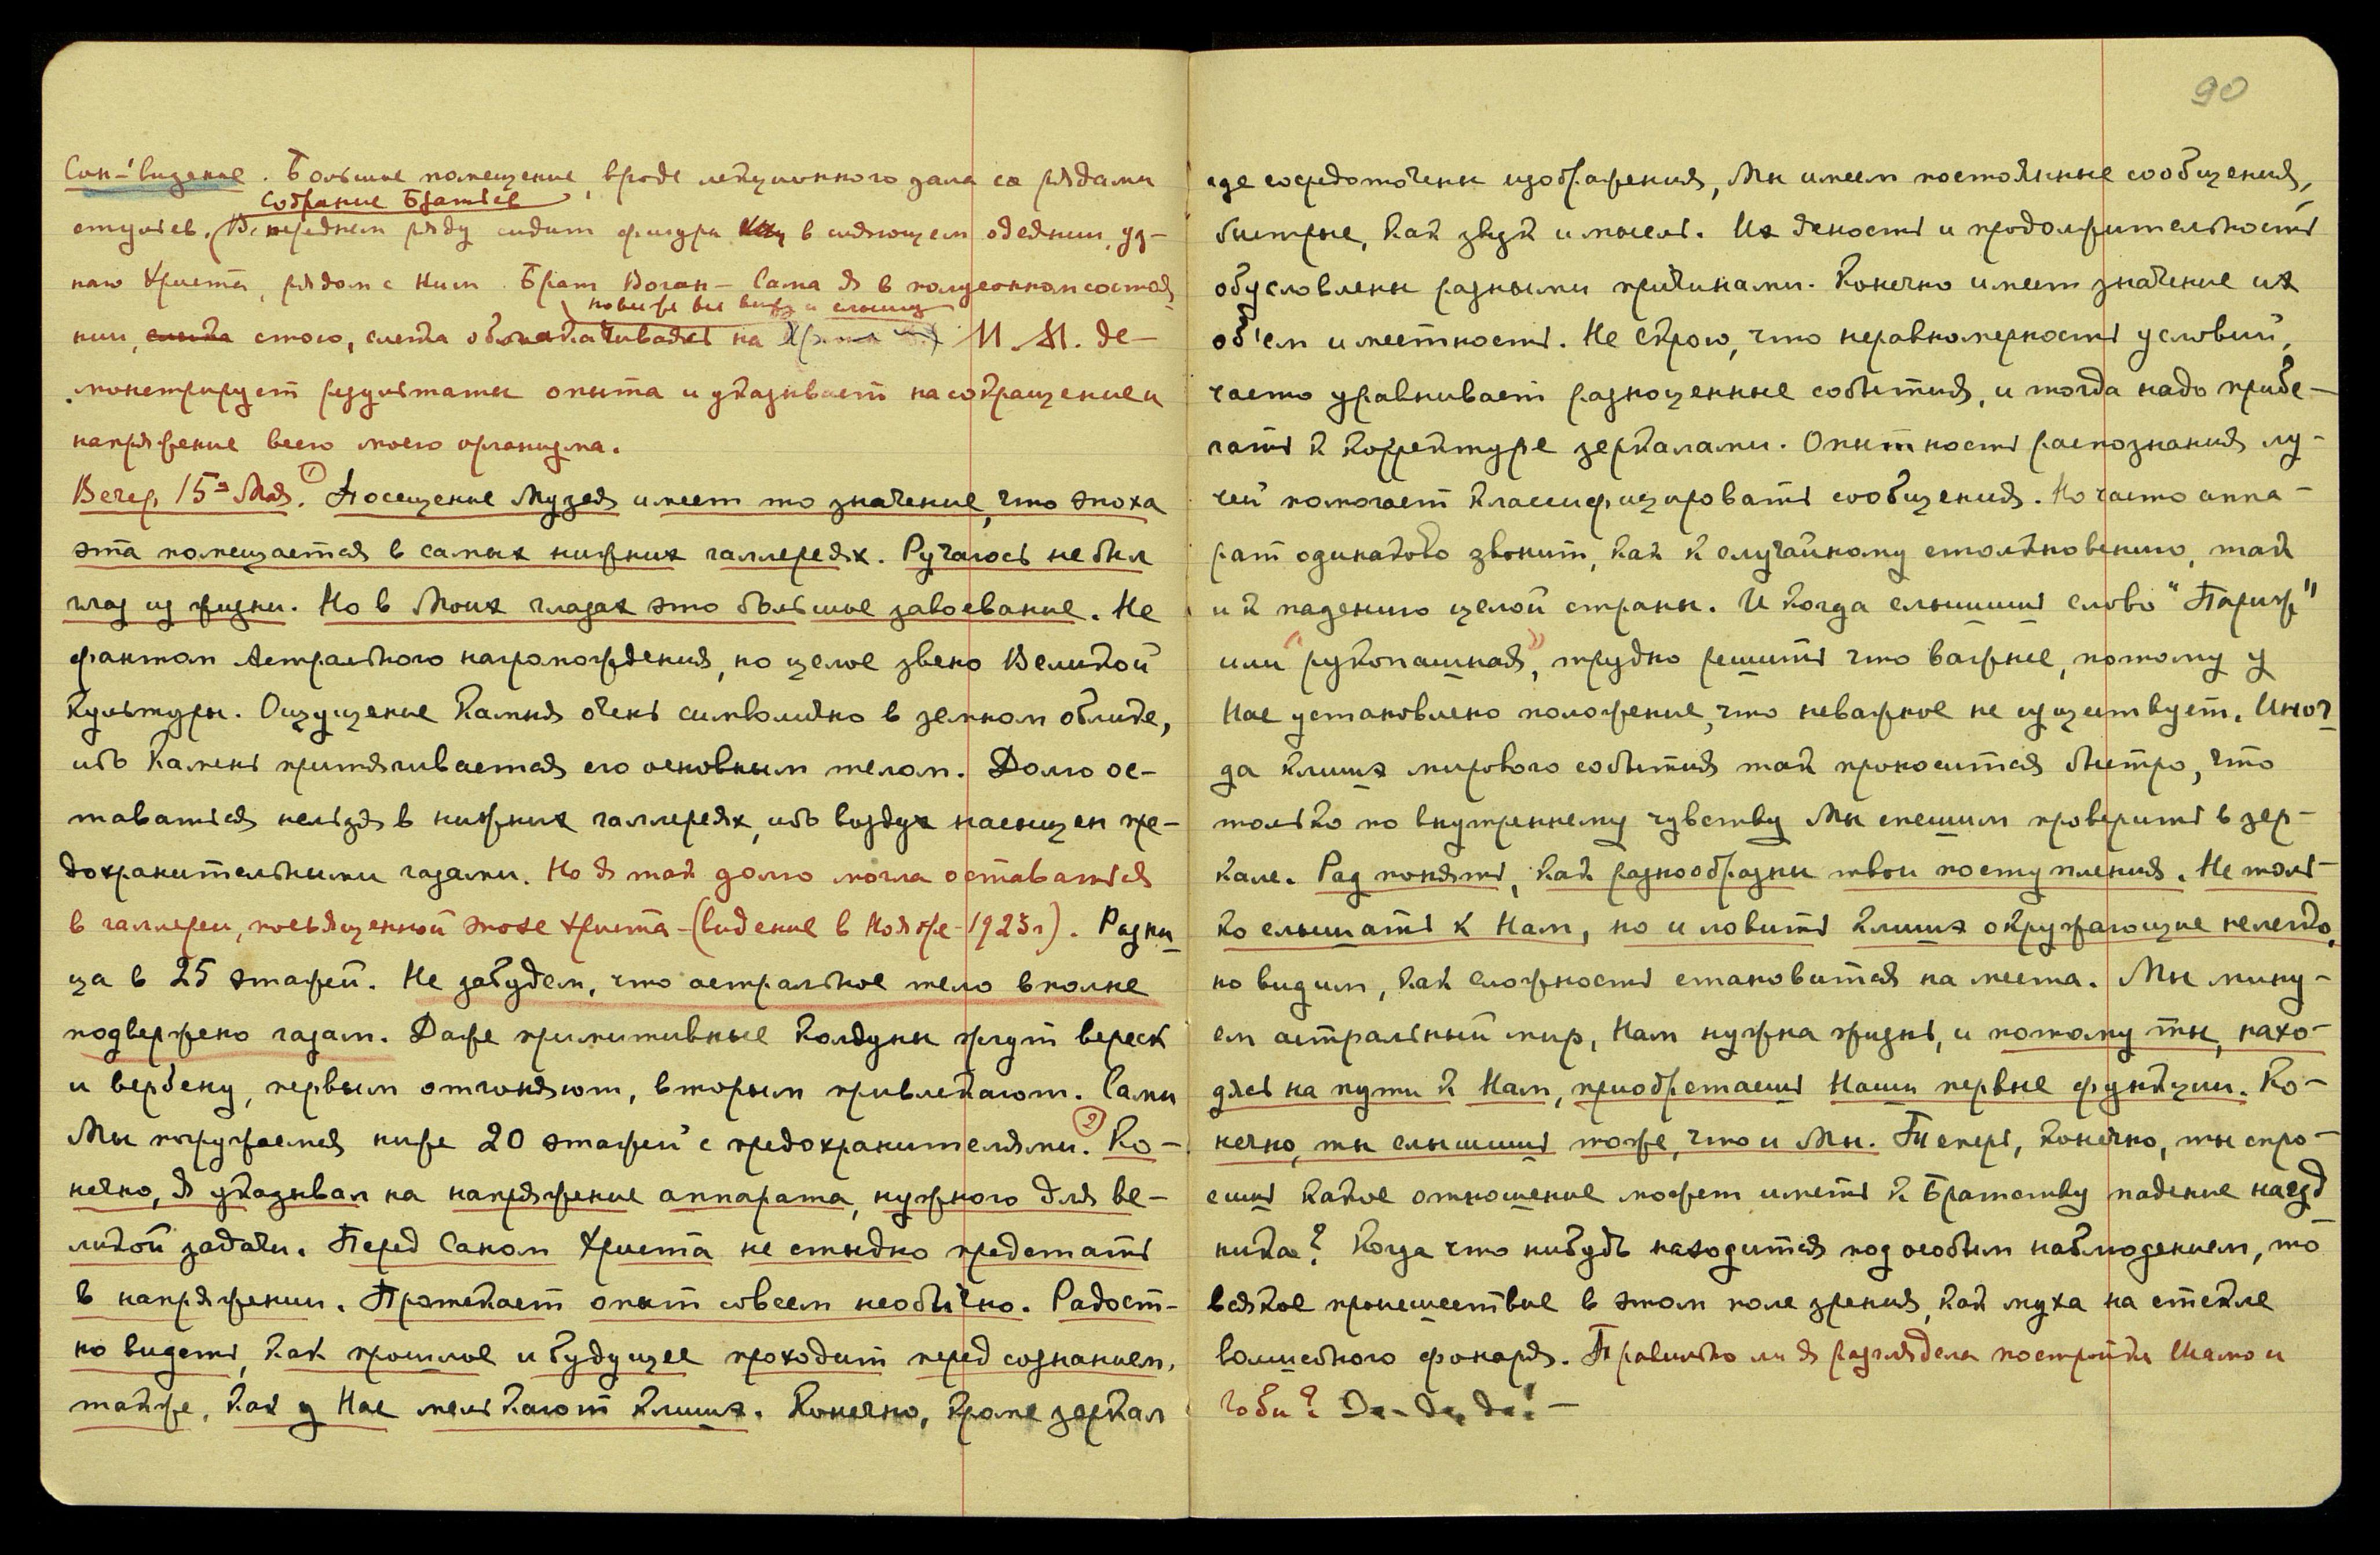 Сон-видение. Большое помещение, вроде лекционного зала со рядами
Собрание Братьев
стульев. В переднем ряду сидит фигура в сияющем одеянии, уз-
наю Христа, рядом с Ним Брат Воган – Сама я в полусонном состоя
повиже все вижу и слышу
нии, стою, слегка обокачиваясь на М.М. де-
монстрирует результаты опыта и указывает на сокращение и
напряжение всего моего организма.
Вечер, 15го Мая. ① Посещение Музея имеет то значение, что эпоха
эта помещается в самых нижних галлереях. Ручаюсь не был
глаз из жизни. Но в Моих глазах это большое завоевание. Не
фантом Астрального нагромождения, но целое звено Великой
Культуры. Ощущение Камня очень символично в земном облике,
ибо Камень притягивается его основным телом. Долго ос-
таваться нельзя в нижних галлереях, ибо воздух насыщен пре-
дохранительными газами. Но я так долго могла оставаться
в галлереи, посвященной эпохе Христа – (видение в Ноябре – 1923г). Разни
ца в 25 этажей. Не забудем, что астральное тело вполне
подвержено газам. Даже примитивные колдуны жгут вереск
и вербену, первым отгоняют, вторым привлекают. Сами
Мы погружаемся ниже 20 этажей с предохранителями. ② Ко-
нечно, Я указывал на напряжение аппарата, нужного для ве-
ликой задачи. Перед Саном Христа не стыдно предстать
в напряжении. Протекает опыт совсем необычно. Радост-
но видеть, как прошлое и будущее проходит перед сознанием,
также, как у Нас мелькают клише. Конечно, кроме зеркал
90
где сосредоточены изображения, Мы имеем постоянные сообщения,
быстрые, как звук и мысль. Их ясность и продолжительность
обусловлены разными причинами. Конечно имеет значение их
об'ем и местность. Не скрою, что неравномерность условий,
часто уравнивает разноценные события, и тогда надо прибе-
гать к корректуре зеркалами. Опытность распознания лу-
чей помогает классифицировать сообщения. Но часто аппа-
рат одинаково звонит, как к случайному столкновению, так
и к падению целой страны. И когда слышишь слово "Париж"
или "рукопашная", трудно решить что важнее, потому у
Нас установлено положение, что неважное не существует. Иног
да клише мирового события так проносится быстро, что
только по внутреннему чувству Мы спешим проверить в зер-
кале. Рад понять, как разнообразны твои поступления. Не толь-
ко слышать к Нам, но и ловить клише окружающие нелегко,
но видим, как сложность становится на места. Мы мину-
ем астральный мир, Нам нужна жизнь, и потому ты, нахо-
дясь на пути к Нам, приобретаешь Наши первые функции. Ко-
нечно, ты слышишь тоже, что и Мы. Теперь, конечно, ты спро-
сишь какое отношение может иметь к Братству падение наезд
ника? Когда что нибудь находится под особым наблюдением, то
всякое происшествие в этом поле зрения, как муха на стекле
волшебного фонаря. Правильно ли я разглядела постройки Шамо и
Гоби? Да, да, да! –